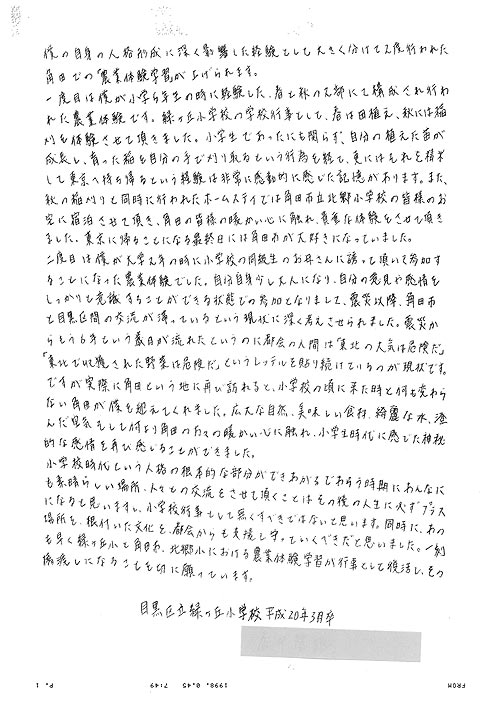 僕の自身の人格形成に深く影響した経験として大きく分けて2度行われた
角田での「農業体験学習」が上げられます。
一度目は僕が小学5年生の時に経験した、春と秋の2部にて構成され行わ
れた農業体験です。緑ヶ丘小学校の学校行事として、春は田植え、秋には稲
刈を体験させて頂きました。小学生であったにも関らず、自分の植えた苗が
成長し、育った稲を自分の手で刈り取るという行為を経て、更にはそれを精米
して東京へ持ち帰るという経験は非常に感動的に感じた記憶があります。また、
秋の稲刈りと同時に行われたホームステイでは角田市立北郷小学校の皆様のお
宅に宿泊させて頂き、角田の皆様の暖かい心に触れ、貴重な体験をさせて頂き
ました。東京に帰ることになる最終日には角田市が大好きになっていました。
二度目は僕が大学2年の時に小学校の同級生のお母さんに誘って頂いて参加す
ることになった農業体験でした。自分自身少し大人になり、自分の発見や感情を
しっかりと意識することができる状態での参加となりまして、震災以降、角田市
と目黒区間の交流が滞っているという現状に深く考えさせられました。震災か
らもう6年という歳月が流れたというのに都会の人間は「東北の大気は危険だ」
「東北で収穫された野菜は危険だ」というレッテルを貼り続けているのが現状です。
ですが実際に角田という地に再び訪れると、小学校の頃に来た時と何も変わら
ない角田が僕を迎えてくれました。広大な自然、美味しい食材、綺麗な水、澄
んだ空気そして何より角田の方々の暖かい心に触れ、小学生時代に感じた神秘
的な感情を再び感じることができました。
小学校時代という人格の根本的な部分ができあがるであろう時期にあんなに
も素晴らしい場所、人々との交流をさせて頂くことはその後の人生に必ずプラス
になると思いますし、小学校行事として無くすべきではないと思います。同時に、あの
場所を、根付いた文化を、都会からも支援し守っていくべきだと思いました。一刻
も早く緑ヶ丘小と角田市、北郷小における農業体験学習が行事として復活し、その
橋渡しになることを切に願っています。
目黒区立緑ヶ丘小学校平成20年3月卒
FROM 1998. 0.45 7:49 P. 1